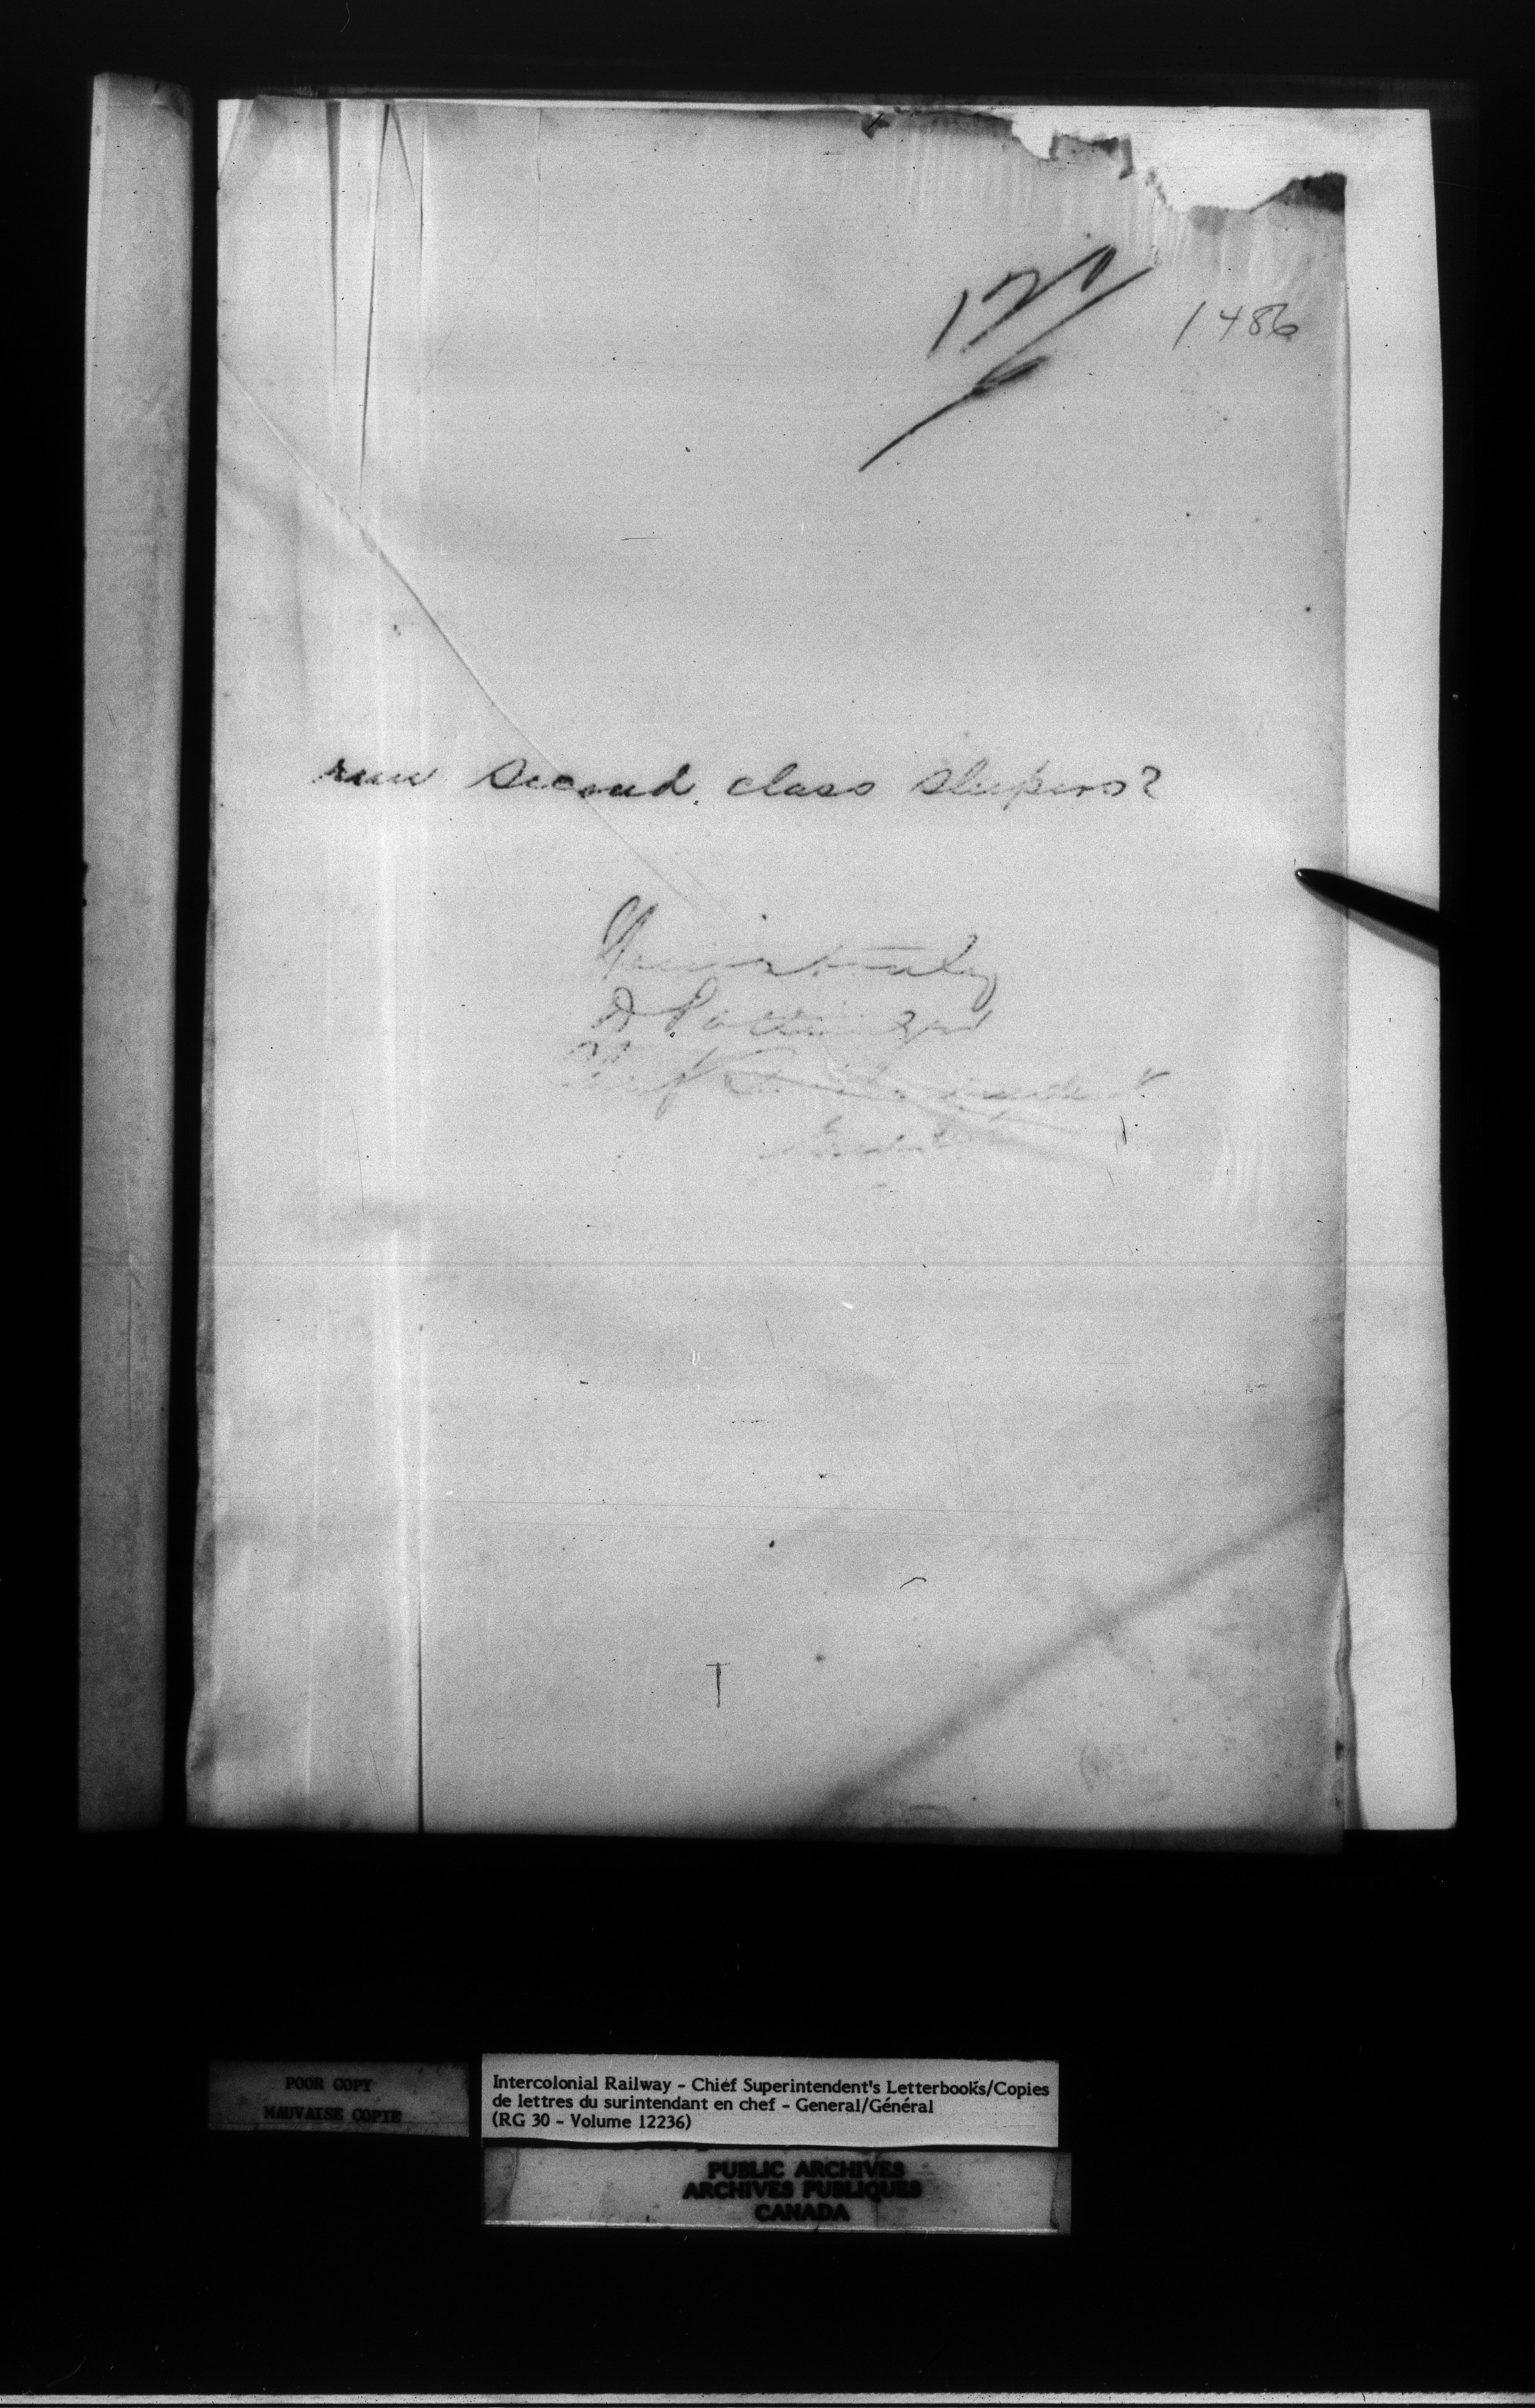 1486
run second class sleepers?
Yours truly
D Pottinger
Chief Superintendent
POOR COPY
MAUVAISE COPIE
Intercolonial Railway - Chief Superintendent's Letterbooks/Copies
de lettres du surintendant en chef - General/Général
(RG 30 - Volume 12236)
PUBLIC ARCHIVES
ARCHIVES PUBLIQUES
CANADA